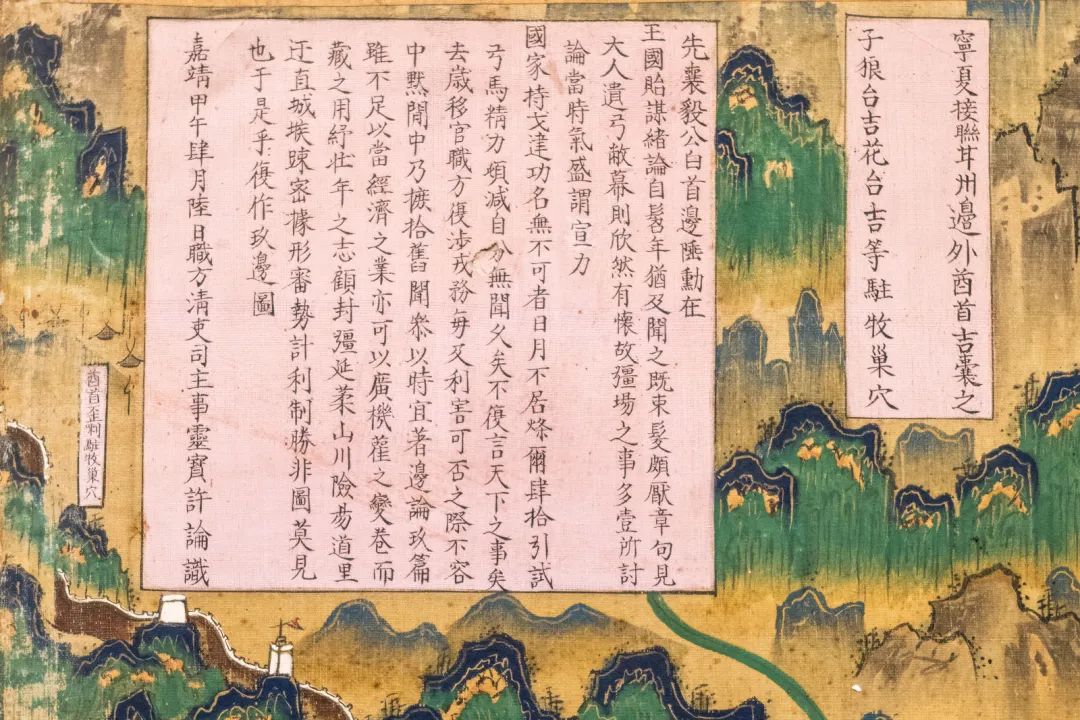 寧夏接聯甘州邊外酋首吉囊之
子狼台吉花台吉等駐牧巢穴
先襄毅公白首邊陲勳在
王國貽謀緒論自髫年猶及聞之既束髮頗厭章句見
大人遺弓敝幕則欣然有懷故彊場之事多壹所討
論當時氣盛謂宣力
國家持戈達功名無不可者日月不居條爾肆拾引試
弓馬精力頓減自分無聞久矣不復言天下之事矣
去歲移官職方復涉戎務每及利害可否之際不容
中默閒中乃摭拾舊聞叅以時宜著邊論玖篇
雖不足以當經濟之業亦可以廣機萑之變卷而
藏之用紓壯年之志顧封彊延袤山川險易道里
迂直城堠踈密據形審勢計利制勝非圖莫見
也于是乎復作玖邊圖
嘉靖甲午肆月陸日職方清吏司主事靈寶許論識
酋首歪剌駐牧巢穴